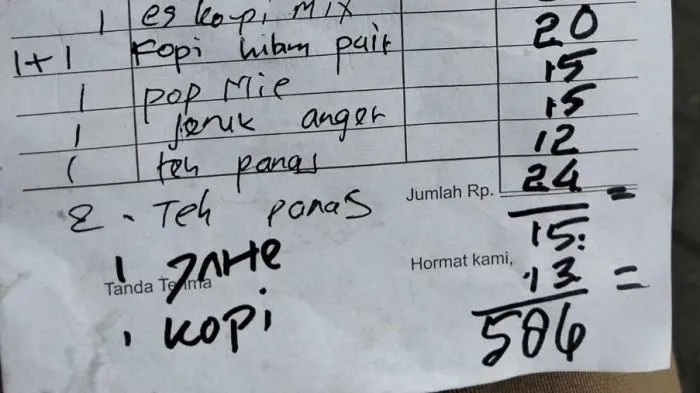 1 es kopi Mix
1+1 Kopi hitam pait 20
1 pop Mie 15
1 jeruk anger 15
1 teh panas 12
2 - Teh panas Jumlah Rp. 24 =
15:
1 JAHe Hormat kami, 13 =
Tanda Terima
1 Kopi 506